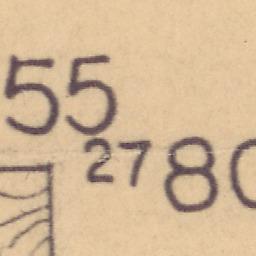 55
27 80